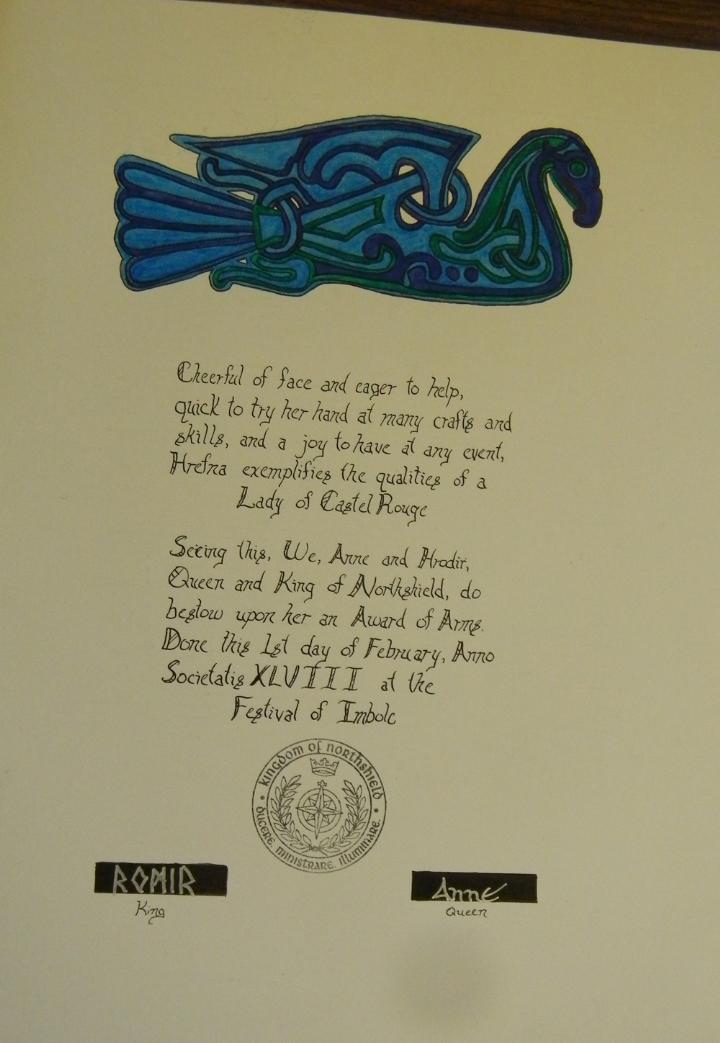 Cheerful of face and eager to help,
quick to try her hand at many crafts and
skills, and a joy to have at any event,
Hrefna exemplifies the qualities of a
Lady of Castel Rouge
Seeing this, We, Anne and Hrodir,
Queen and King of Northshield, do
bestow upon her an Award of Arms.
Done this 1st day of February, Anno
Societatis XLVIII at the
Festival of Imbolc
KINGDOM OF NORTHSHIELD
DUCERE, MINISTRARE, ILLUMINARE.
Anne
King
Queen